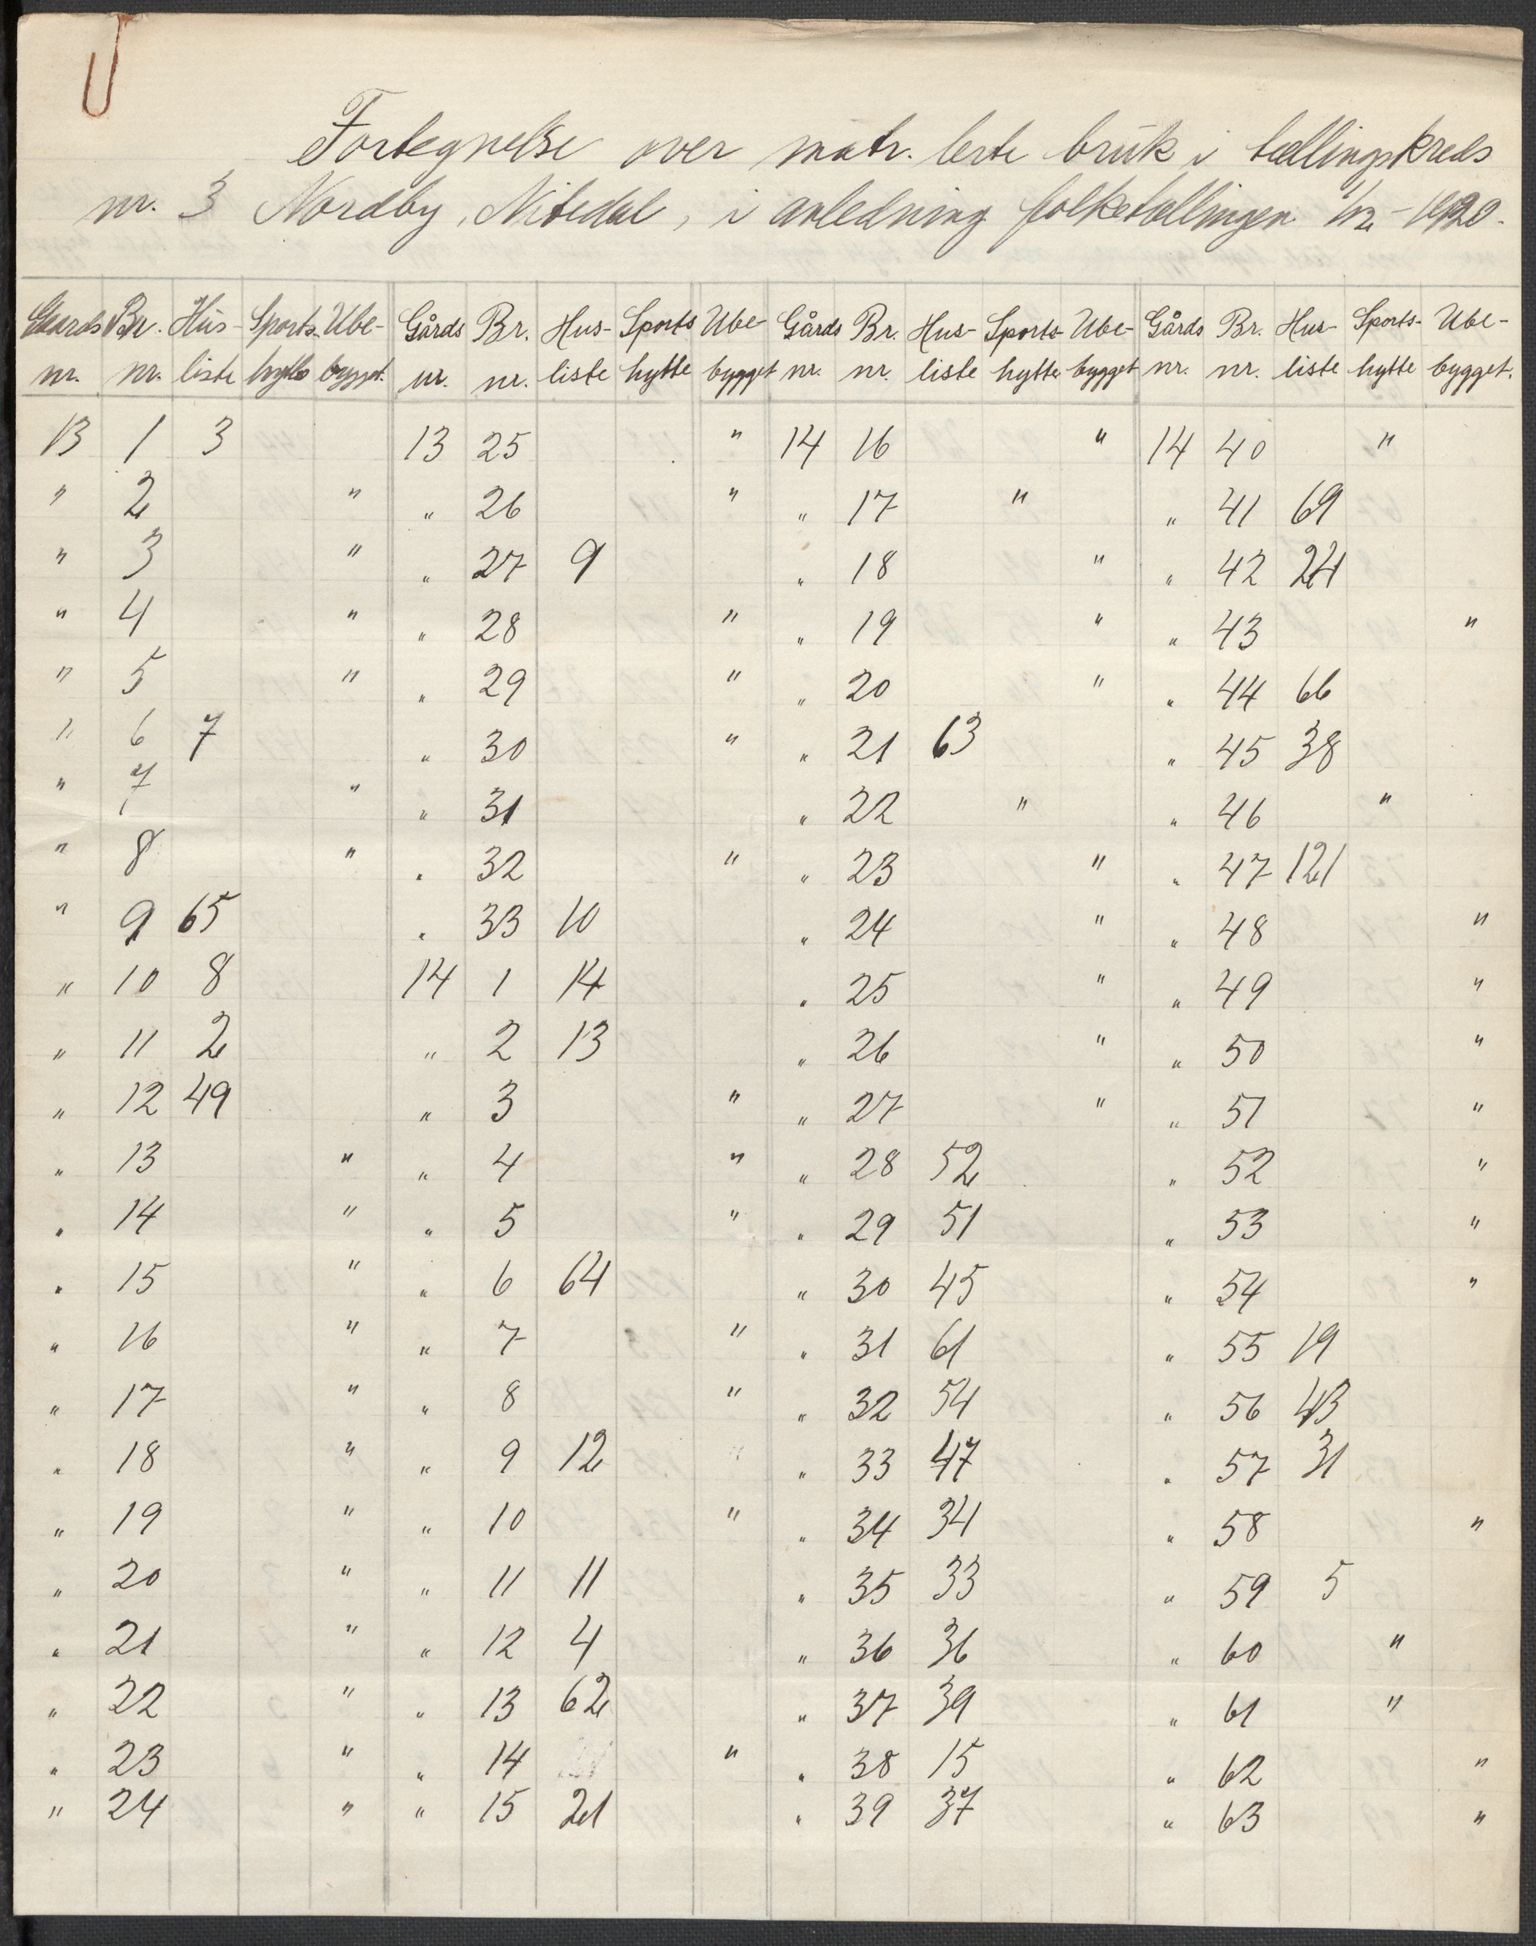 Fortegnelse over matr. lerte bruk i tællingskreds
nr. 3 Nordby, Nitedal, i anledning folketællingen 1/12 - 1920.
Gaards Br. Hus- Sports- Ube- Gårds Br. Hus- Sports Ube- Gårds Br. Hus- Sports- Ube- Gårds Br. Hus- Sports- Ube-
nr. nr. liste hytte bygget. nr. nr. liste hytte bygget nr. nr. liste hytte bygget nr. nr. liste hytte bygget.
13 1 3 13 25 " 14 16 " 14 40 "
" 2 " " 26 " " 17 " " 41 69
" 3 " " 27 9 " 18 " " 42 24
" 4 " " 28 " " 19 " " 43 "
" 5 " " 29 " " 20 " " 44 66
" 6 7 " 30 " " 21 63 " 45 38
" 7 " " 31 " 22 " " 46 "
" 8 " " 32 " " 23 " " 47 121
" 9 65 " 33 10 " 24 " " 48 "
" 10 8 14 1 14 " 25 " " 49 "
" 11 2 " 2 13 " 26 " " 50 "
" 12 49 " 3 " " 27 " " 51 "
" 13 " " 4 " " 28 52 " 52 "
" 14 " " 5 " " 29 51 " 53 "
" 15 " " 6 64 " 30 45 " 54 "
" 16 " " 7 " " 31 61 " 55 19
" 17 " " 8 " " 32 54 " 56 43
" 18 " " 9 12 " 33 47 " 57 31
" 19 " " 10 " " 34 34 " 58 "
" 20 " " 11 11 " 35 33 " 59 5
" 21 " " 12 4 " 36 36 " 60 "
" 22 " " 13 62 " 37 39 " 61 "
" 23 " " 14 " " 38 15 " 62 "
" 24 " " 15 21 " 39 37 " 63 "